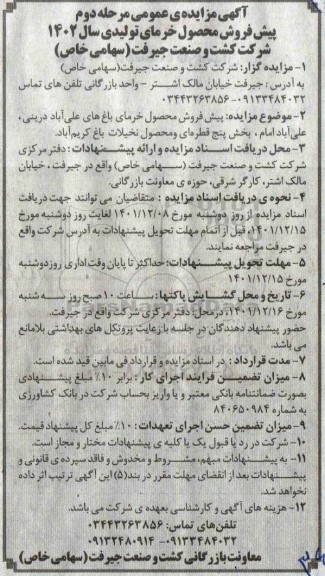 آگهی مزایده ی عمومی مرحله دوم
پیش فروش محصول خرمای تولیدی سال ۱۴۰۲
شرکت کشت و صنعت جیرفت (سهامی خاص)
۱- مزایده گزار: شرکت کشت و صنعت جیرفت(سهامی خاص)
به آدرس : جیرفت خیابان مالک اشتر – واحد بازرگانی تلفن های تماس
۰۳۴۴۳۲۶۳۸۵۶-۰۹۱۳۳۴۸۴۰۳۲
۲- موضوع مزایده: پیش فروش محصول خرمای باغ های علی آباد درینی ،
علی آباد امام ، بخش پنج قطره ای ومحصول نخیلات باغ کریم آباد.
۳- محل دریافت اسناد مزایده و ارائه پیشنهادات : دفتر مرکزی
شرکت کشت و صنعت جیرفت (سهامی خاص) واقع در جیرفت ، خیابان
مالک اشتر، کارگر شرقی، حوزه ی معاونت بازرگانی.
۴- نحوه ی دریافت اسناد مزایده : متقاضیان می توانند جهت دریافت
اسناد مزایده از روز دوشنبه مورخ ۱۴۰۱/۱۲/۰۸ لغایت روز دوشنبه مورخ
۱۴۰۱/۱۲/۱۵، قبل از اتمام مهلت تحویل پیشنهادات به آدرس شرکت واقع
در جیرفت مراجعه نمایند.
۵- مهلت تحویل پیشنهادات: حداکثر تا پایان وقت اداری روز دوشنبه
مورخ ۱۴۰۱/۱۲/۱۵
۶- تاریخ و محل گشایش پاکتها : ساعت ۱۰ صبح روز سه شنبه
مورخ ۱۴۰۱/۱۲/۱۶، در محل: دفتر مرکزی شرکت واقع در جیرفت.
حضور پیشنهاد دهندگان در جلسه با رعایت پروتکل های بهداشتی بلامانع
می باشد.
۷- مدت قرارداد : در اسناد مزایده و قرارداد فی مابین قید شده است.
۸- میزان تضمین فرایند اجرای کار : برابر ۱۰٪ مبلغ پیشنهادی
بصورت ضمانتنامه بانکی معتبر و یا واریز بحساب شرکت در بانک کشاورزی
به شماره ۸۴۰۶۵۰۹۸۴
۹- میزان تضمین حسن اجرای تعهدات : ۱۰٪ مبلغ کل پیشنهاد قیمت.
۱۰- شرکت در رد یا قبول یک یا کلیه ی پیشنهادات مختار و مجاز است.
۱۱- به پیشنهادات مبهم، مشروط و مخدوش و فاقد سپرده ی قانونی و
پیشنهادات بعد از انقضای مهلت مقرر در بند (۵) این آگهی ترتیب اثر داده
نخواهد شد.
۱۲- هزینه های آگهی و کارشناسی بعهده ی شرکت می باشد.
تلفن های تماس: ۰۳۴۴۳۲۶۳۸۵۶
۰۹۱۳۳۴۸۴۰۳۲- ۰۹۱۳۲۴۸۰۹۱۴
معاونت بازرگانی کشت و صنعت جیرفت (سهامی خاص)